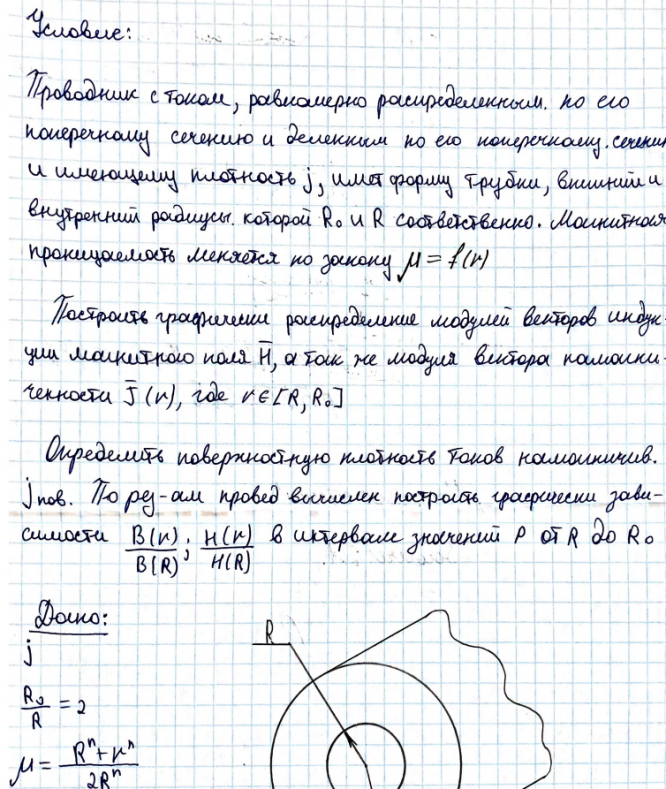 Условие:
Проводник с током, равномерно распределенным. по его
поперечному сечению и деленным по его поперечному. сечени
и имеющему плотность j, имет форму трубки, внешний и
внутренний радиусы. которой R₀ и R соответственно. Магнитная
проницаемость меняется по закону μ = f(r)
Построить графически распределение модулей векторов индук-
ции магнитного поля H̅, а так же модуля вектора намагни-
ченности J̅(r), где r∈[R, R₀]
Определить поверхностную плотность токов намагничив.
j пов. По рез-ам провед вычислен построить графически зави-
симости B(r)/B(R); H(r)/H(R) в интервале значений ρ от R до R₀
Дано:
R
j
R₀/R = 2
μ = (Rⁿ+rⁿ)/2Rⁿ